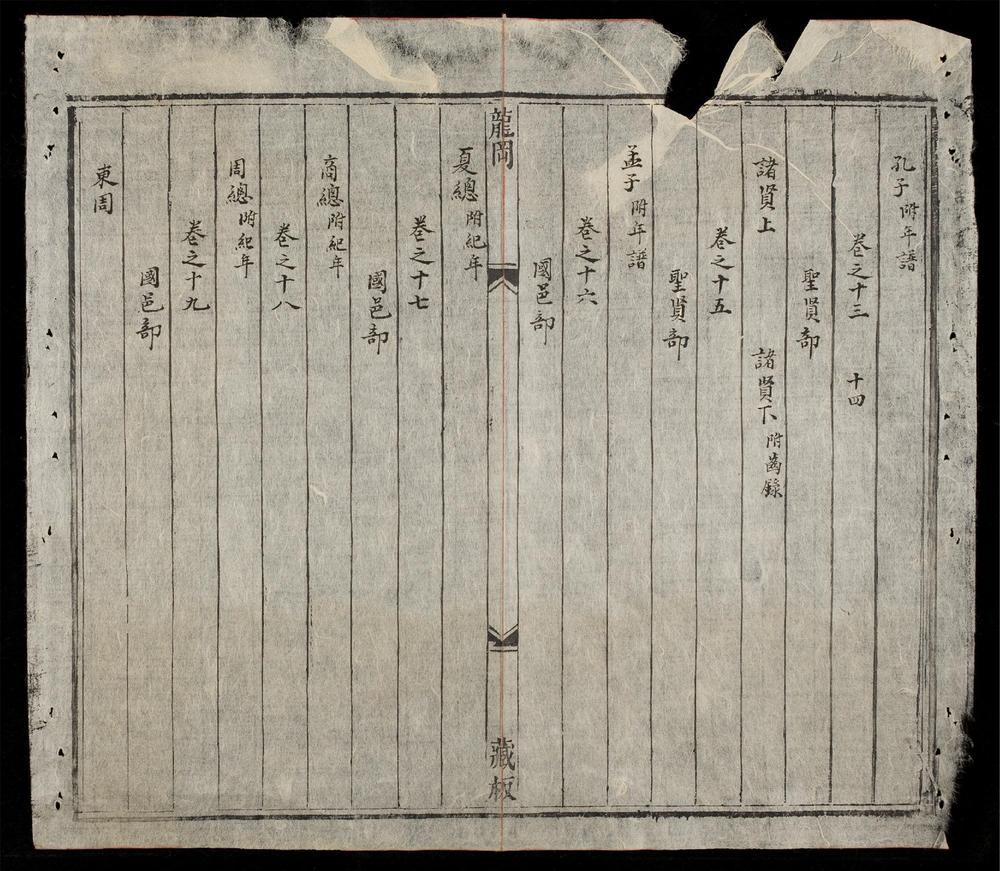 孔子附年譜
卷之十三 十四
聖賢部
諸賢上 諸賢下附齒錄
卷之十五
聖賢部
孟子附年譜
卷之十六
國邑部
龍岡
藏板
夏總附紀年
卷之十七
國邑部
商總附紀年
卷之十八
周總附紀年
卷之十九
國邑部
東周